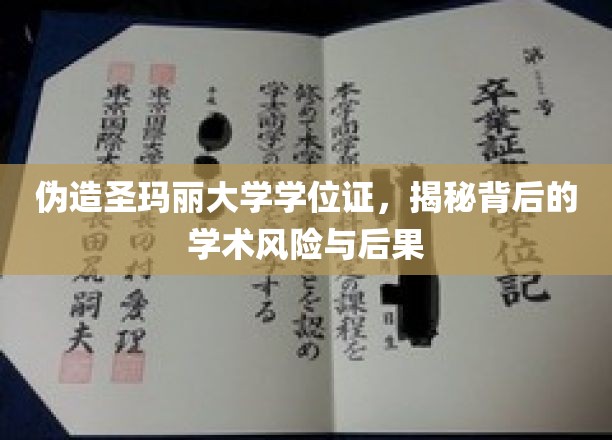 第 号
卒業証書学位記
日生
本学商学部
定の課程を
修めて本学
ことを認め
学士(商学)の
する
平成
東京国際大学商
田村愛理
東京国際大学
長田尻嗣夫
伪造圣玛丽大学学位证，揭秘背后的
学术风险与后果